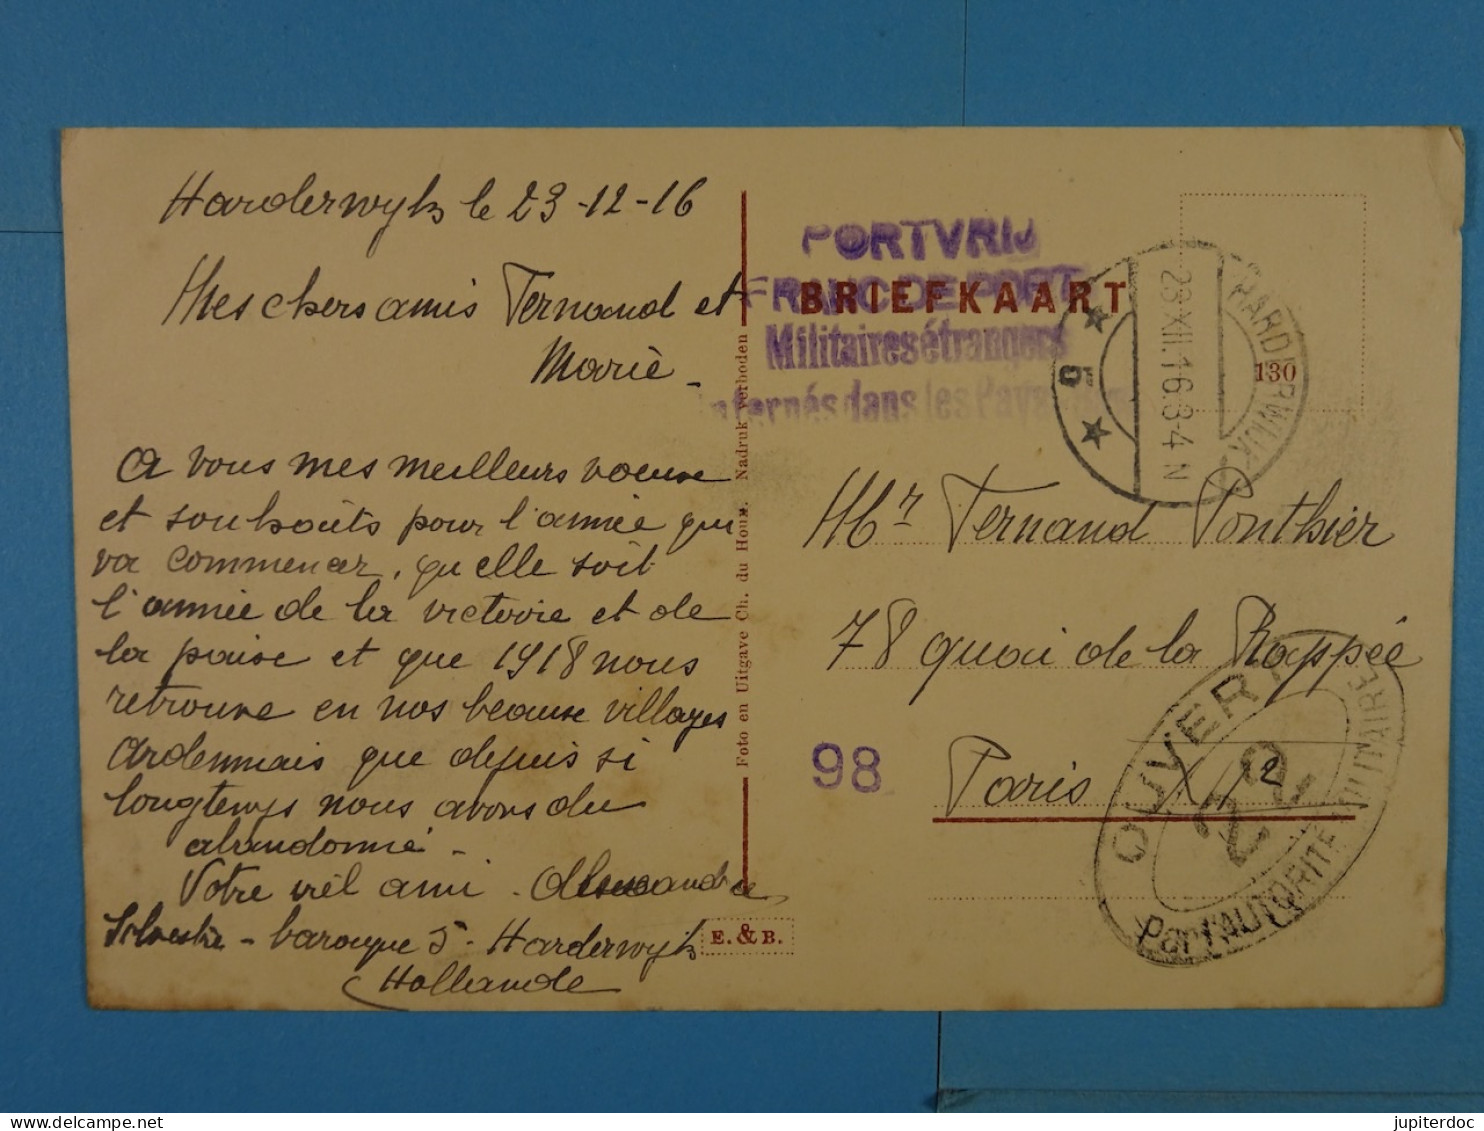 Harderwyk le 23-12-16
Mes chers amis Fernand et
Marie -
A vous mes meilleurs voeuxe
et souhaits pour l'année qui
va commencer, qu'elle soit
l'année de la victoire et de
la paixe et que 1918 nous
retrouve en nos beauxe villages
Ardennais que depuis si
longtemps nous avons dû
abandonné -
Votre viel ami - Alexandre
Silvestre - baraque 5 - Harderwyk
Hollande
Foto en Uitgave Ch. du Houx. Nadruk verboden
E. & B.
PORTVRIJ
FRANC DE PORT
Militaires étrangers
internés dans les Pays
BRIEFKAART
HARDERWIJK
23 XII.16.3-4 N
5
130
Mr Fernand Ponthier
78 quai de la Rappée
Paris XII
98
OUVERT
22
Par l'AUTORITE MILITAIRE
jupiterdoc